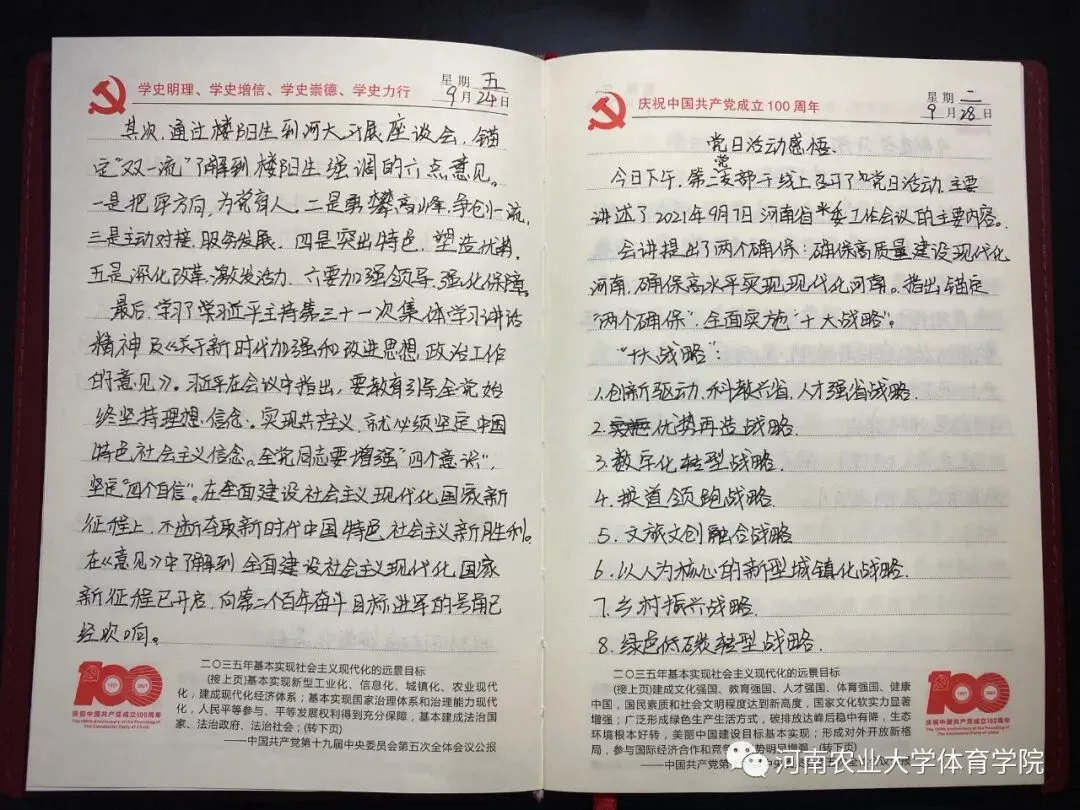 学史明理、学史增信、学史崇德、学史力行
星期 五
9月24日
其次,通过楼阳生到河大开展座谈会,锚
定"双一流"了解到楼阳生强调的六点意见。
一是把牢方向,为党育人。二是勇攀高峰,争创一流,
三是主动对接,服务发展。四是突出特色,塑造优势,
五是深化改革,激发活力,六要加强领导,强化保障。
最后,学习了学习近平主持第三十一次集体学习讲话
精神及《关于新时代加强和改进思想政治工作
的意见》。习近平在会议中指出,要教育引导全党始
终坚持理想信念。实现共产主义,就必须坚定中国
特色社会主义信念。全党同志要增强"四个意识",
坚定"四个自信"。在全面建设社会主义现代化国家新
征程上,不断夺取新时代中国特色社会主义新胜利。
在《意见》中了解到全面建设社会主义现代化国家
新征程已开启,向第二个百年奋斗目标进军的号角已
经吹响。
100
1921 2021
庆祝中国共产党成立100周年
The 100th Anniversary of the Founding of
The Communist Party of China
二〇三五年基本实现社会主义现代化的远景目标
(接上页)基本实现新型工业化、信息化、城镇化、农业现代
化,建成现代化经济体系;基本实现国家治理体系和治理能力现代
化,人民平等参与、平等发展权利得到充分保障,基本建成法治国
家、法治政府、法治社会;(转下页)
——中国共产党第十九届中央委员会第五次全体会议公报
庆祝中国共产党成立100周年
星期 二
9月28日
党日活动感悟.
今日下午,第二党支部于线上召开了党日活动,主要
讲述了2021年9月7日河南省委工作会议的主要内容。
会讲提出了两个确保:确保高质量建设现代化
河南,确保高水平实现现代化河南。指出锚定
"两个确保",全面实施"十大战略"。
"十大战略":
1.创新驱动、科教兴省、人才强省战略.
2.优势再造战略.
3.数字化转型战略.
4.换道领跑战略.
5.文旅文创融合战略
6.以人为核心的新型城镇化战略.
7.乡村振兴战略.
8.绿色低碳转型战略.
二〇三五年基本实现社会主义现代化的远景目标
(接上页)建成文化强国、教育强国、人才强国、体育强国、健康
中国,国民素质和社会文明程度达到新高度,国家文化软实力显著
增强;广泛形成绿色生产生活方式,碳排放达峰后稳中有降,生态
环境根本好转,美丽中国建设目标基本实现;形成对外开放新格
局,参与国际经济合作和竞争 势明显增强;(转下页)
——中国共产党第
100
1921 2021
庆祝中国共产党成立100周年
The 100th Anniversary of the Founding of
The Communist Party of China
河南农业大学体育学院